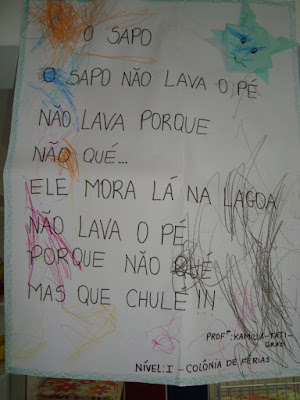 O SAPO
O SAPO NÃO LAVA O PÉ
NÃO LAVA PORQUE
NÃO QUÉ...
ELE MORA LÁ NA LAGOA
NÃO LAVA O PÉ
PORQUE NÃO QUÉ
MAS QUE CHULÉ !!!
PROFª: KAMILLA-TATI-
GRAZI
NÍVEL: I - COLÔNIA DE FÉRIAS